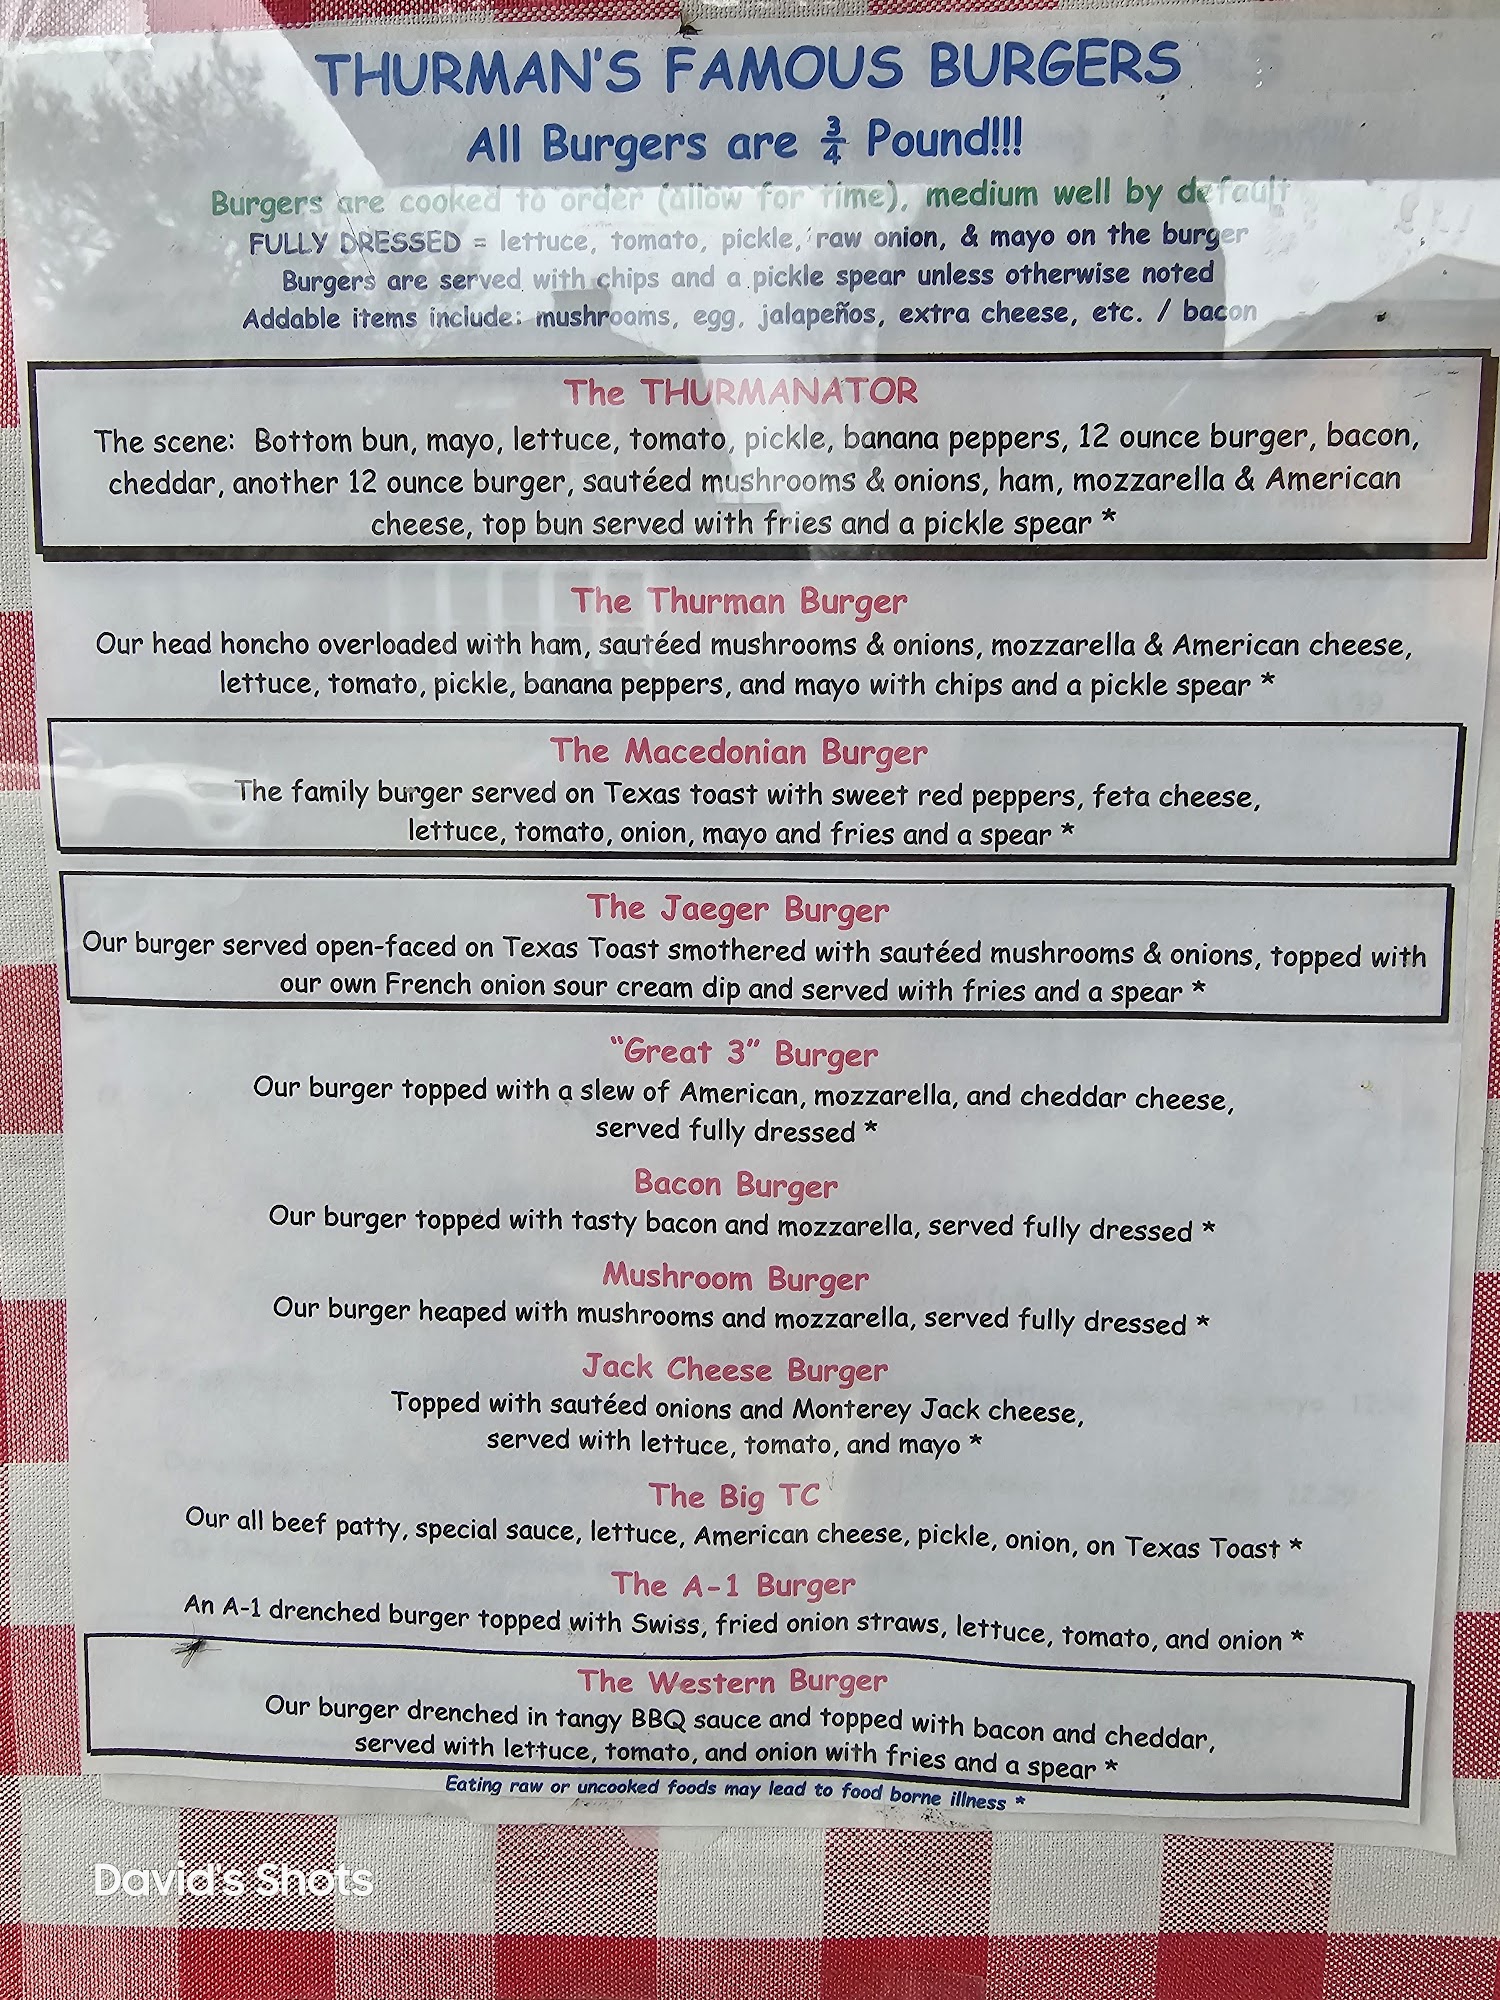 THURMAN'S FAMOUS BURGERS
All Burgers are ¾ Pound!!!
Burgers are cooked to order (allow for time), medium well by default
FULLY DRESSED = lettuce, tomato, pickle, raw onion, & mayo on the burger
Burgers are served with chips and a pickle spear unless otherwise noted
Addable items include: mushrooms, egg, jalapeños, extra cheese, etc. / bacon
The THURMANATOR
The scene: Bottom bun, mayo, lettuce, tomato, pickle, banana peppers, 12 ounce burger, bacon,
cheddar, another 12 ounce burger, sautéed mushrooms & onions, ham, mozzarella & American
cheese, top bun served with fries and a pickle spear *
The Thurman Burger
Our head honcho overloaded with ham, sautéed mushrooms & onions, mozzarella & American cheese,
lettuce, tomato, pickle, banana peppers, and mayo with chips and a pickle spear *
The Macedonian Burger
The family burger served on Texas toast with sweet red peppers, feta cheese,
lettuce, tomato, onion, mayo and fries and a spear *
The Jaeger Burger
Our burger served open-faced on Texas Toast smothered with sautéed mushrooms & onions, topped with
our own French onion sour cream dip and served with fries and a spear *
"Great 3" Burger
Our burger topped with a slew of American, mozzarella, and cheddar cheese,
served fully dressed *
Bacon Burger
Our burger topped with tasty bacon and mozzarella, served fully dressed *
Mushroom Burger
Our burger heaped with mushrooms and mozzarella, served fully dressed *
Jack Cheese Burger
Topped with sautéed onions and Monterey Jack cheese,
served with lettuce, tomato, and mayo *
The Big TC
Our all beef patty, special sauce, lettuce, American cheese, pickle, onion, on Texas Toast *
The A-1 Burger
An A-1 drenched burger topped with Swiss, fried onion straws, lettuce, tomato, and onion *
The Western Burger
Our burger drenched in tangy BBQ sauce and topped with bacon and cheddar,
served with lettuce, tomato, and onion with fries and a spear *
Eating raw or uncooked foods may lead to food borne illness *
David's Shots